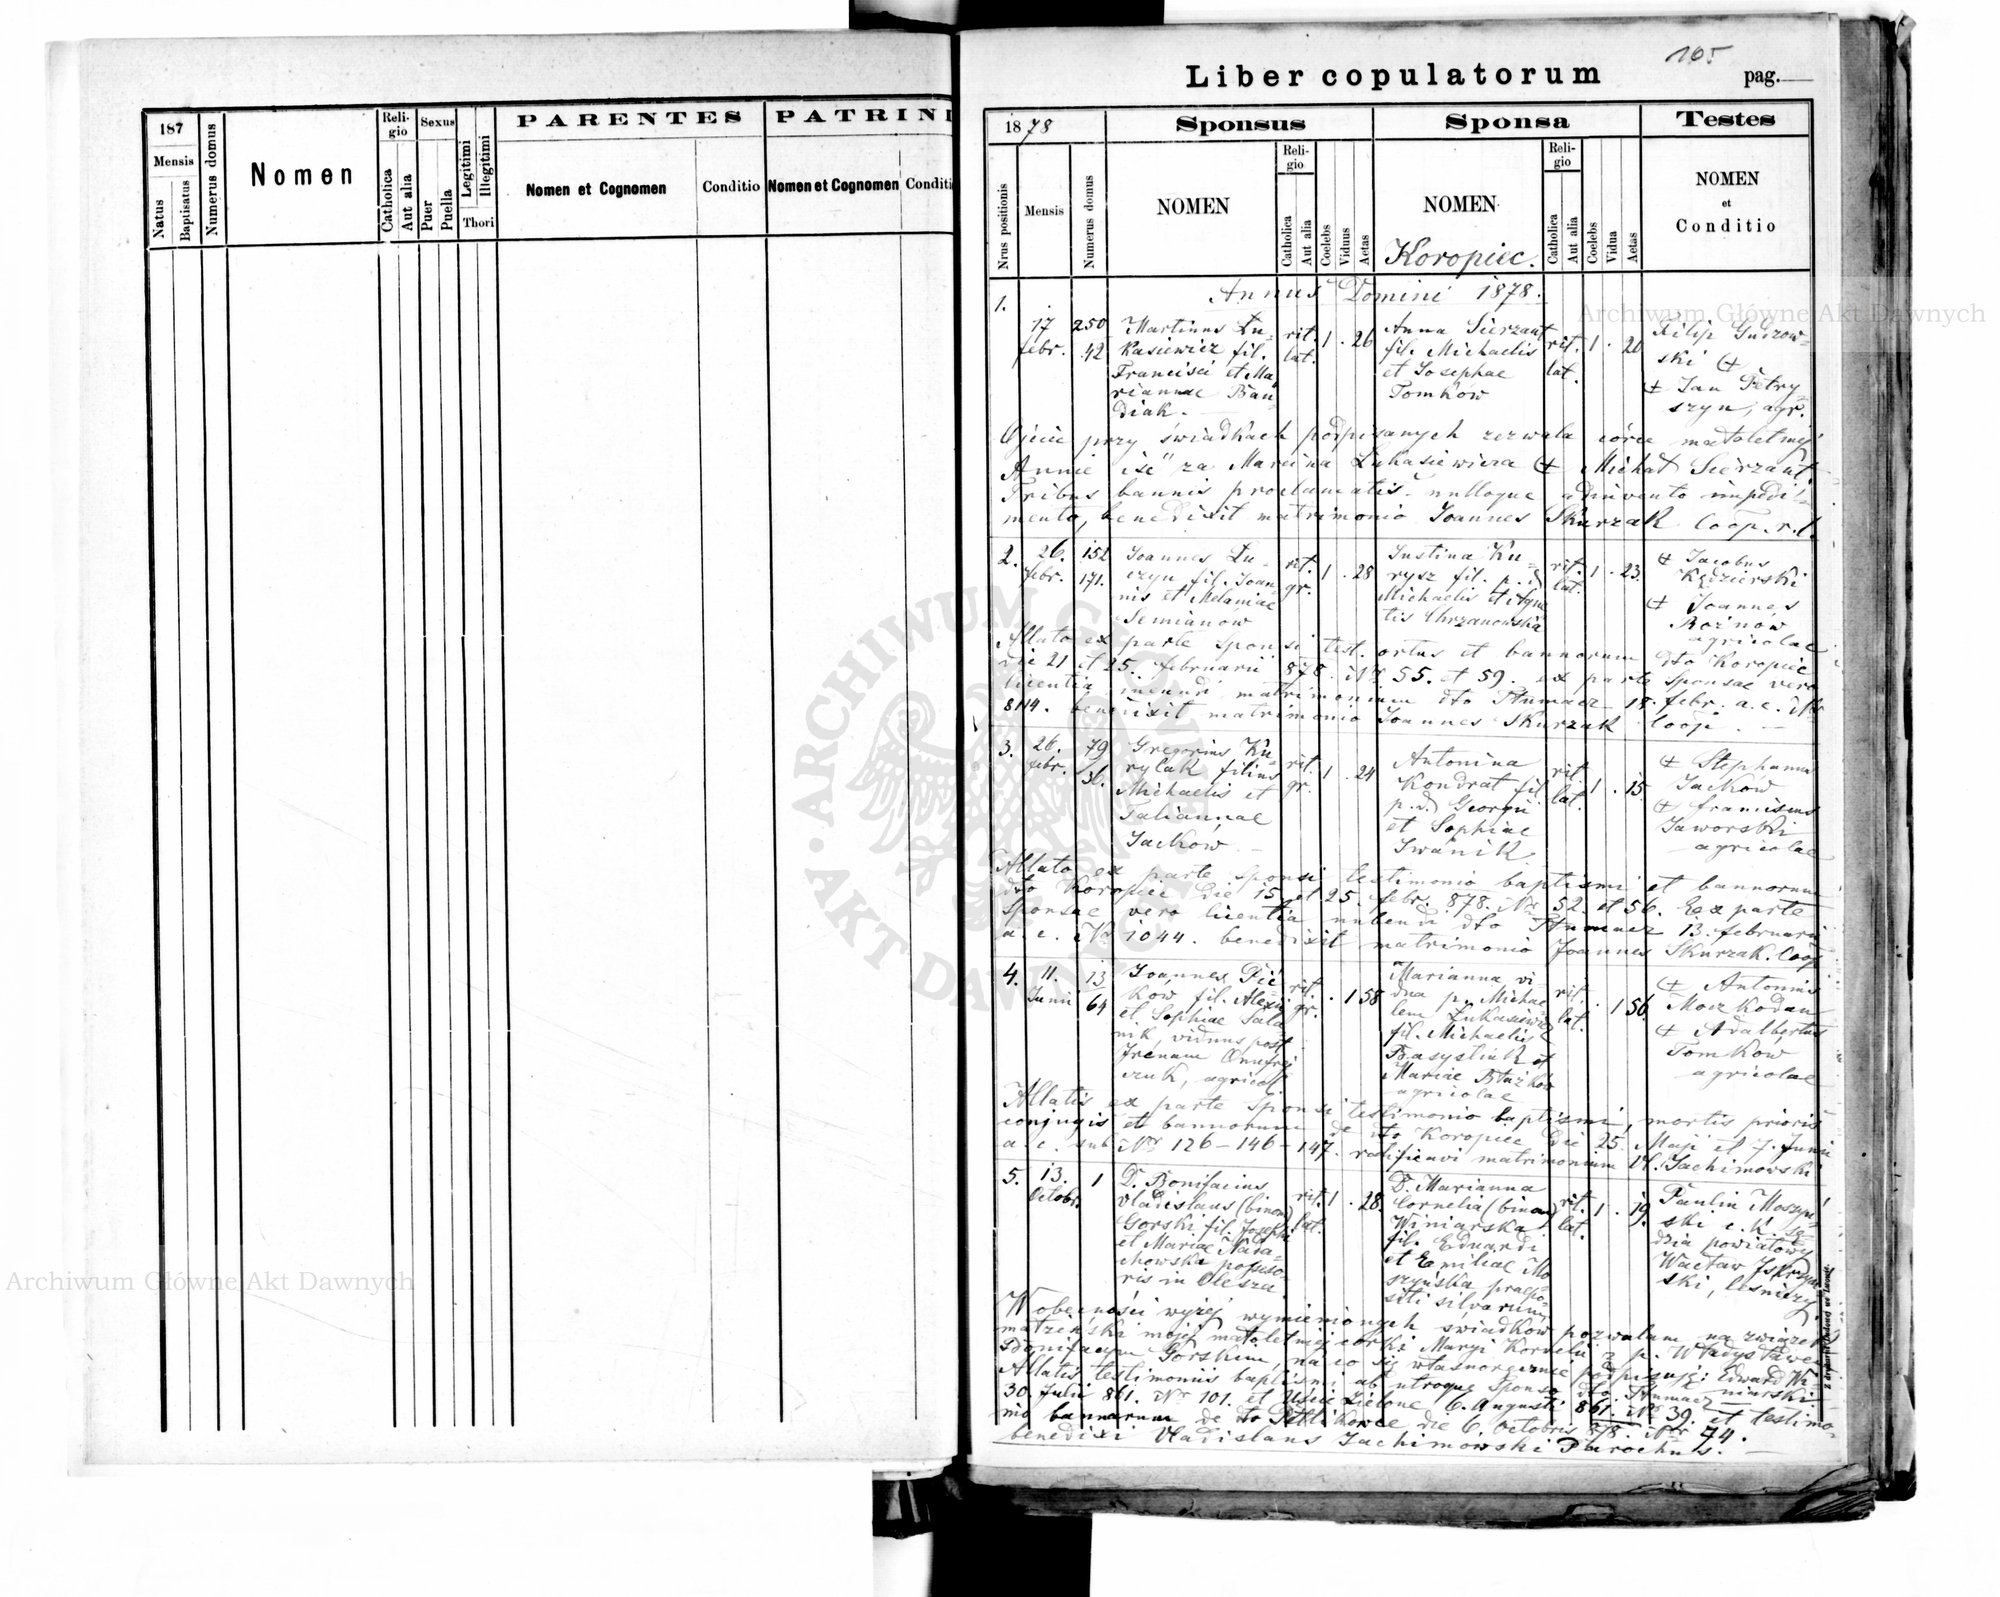 187
Mensis
Natus
Baptisatus
Numerus domus
Nomen
Religio
Catholica
Aut alia
Sexus
Puer
Puella
Legitimi
Illegitimi
Thori
PARENTES
Nomen et Cognomen
Conditio
PATRINI
Nomen et Cognomen
Conditi
105
Liber copulatorum
pag.
1878
Nrus positionis
Mensis
Numerus domus
Sponsus
NOMEN
Religio
Catholica
Aut alia
Coelebs
Viduus
Aetas
Sponsa
NOMEN
Koropiec.
Religio
Catholica
Aut alia
Coelebs
Vidua
Aetas
Testes
NOMEN
et
Conditio
Annus Domini 1878.
1.
17
febr.
250
42
Martinus Łu-
kasiewicz fil.
Francisci et Ma-
riannae Ban-
diak.
rit.
lat.
1 . 26
Anna Sierżant
fil. Michaelis
et Josephae
Tomków
rit.
lat.
1 . 20
Filip Gudzow-
ski +
+ Jan Petry-
szyn, agr.
Ojciec przy świadkach podpisanych zezwala córce małoletniej
Annie iść za Marcina Łukasiewicza + Michał Sierżant
Tribus bannis proclamatis nulloque adinvento impedi-
mento, benedixit matrimonio Joannes Skurzak Coop. r. l.
2.
26.
febr.
152
171.
Joannes Łu-
czyn fil. Joan-
nis et Melaniae
Semianów
rit.
gr.
1 . 28
Justina Ku-
rysz fil. p. d.
Michaelis et Agne
tis Chrzanowska
rit.
lat.
1 . 23.
+ Jacobus
Kędzierski
+ Joannes
Rożnow
agricolae
Allato ex parte Sponsi test. ortus et bannorum dto Koropiec
die 21 et 25. februarii 878. Nr 55. et 59. ex parte sponsae vero
licentia ineundi matrimonium dto Tłumacz 18. febr. a. c. Nr
8114. benedixit matrimonio Joannes Skurzak Coop.
3.
26.
febr.
79
36.
Gregorius Ku-
rylak filius
Michaelis et
Taliannae
Jacków
rit.
gr.
1 . 24
Antonina
Kondrat fil
p. d. Georgii
et Sophiae
Iwanik
rit.
lat.
1 . 15.
+ Stephanus
Jacków
+ franciscus
Jaworski
agricolae
Allato ex parte Sponsi testimonio baptismi et bannorum
dto Koropiec die 15. et 25. febr. 878. Nr 52. et 56. Ex parte
Sponsae vero licentia nubendi dto Tłumacz 13. februarii
a. c. Nr 1044. benedixit matrimonio Joannes Skurzak. Coop
4.
11
Junii
13
64
Joannes
ków fil. Alexii
et Sophiae Sala-
nik, viduus post
Irenam Onufrej
czuk, agricol.
rit.
gr.
. 1 58
Marianna vi-
dua p. Michae
lem Łukasiewicz
fil. Michaelis
Basystiuk et
Mariae Błażków
agricolae
rit.
lat.
. 1 56.
+ Antonius
+ Adalbertus
Tomkow
agricolae
Allatis ex parte Sponsi testimonio baptismi, mortis prioris
conjugis et bannorum de dto Koropiec die 25. Maji et 7. Junii
a. c. sub Nr 126 - 146 - 147. ratificavi matrimonium Vl. Jachimowski
5.
13.
Octobr.
1
D. Bonifacius
Vladislaus (binom)
Gorski fil. Josephi
et Mariae
chowska possesso-
ris in Olesza
rit.
lat.
1 . 28.
D. Marianna
Cornelia (binom)
Winiarska
fil. Eduardi
et Emiliae Mo
szyńska praepo-
siti silvarum
rit.
lat.
1 . 19.
Paulin Moszyń-
ski c. k. sę-
dzia powiatowy
Wacław
ski, leśniczy
W obecności wyżej wymienionych świadków pozwalam na związek
małżeński mojej małoletniej córki Maryi Kornelii z p. Władysławem
Bonifacym Górskim, na co się własnoręcznie podpisuję: Edward Wi-
niarski
Allatis testimoniis baptismi ab utroque Sponso dto Tłumacz
30. Julii 861. Nr 101. et Uście Zielone 6. Augusti 861. Nr 39. et testimo-
nio bannorum de dto Petlikowce die 6. Octobris 878. Nr 74.
benedixi Vladislaus Jachimowski Parochus.
Archiwum Główne Akt Dawnych
Archiwum Główne Akt Dawnych
ARCHIWUM GŁÓWNE
AKT DAWNYCH